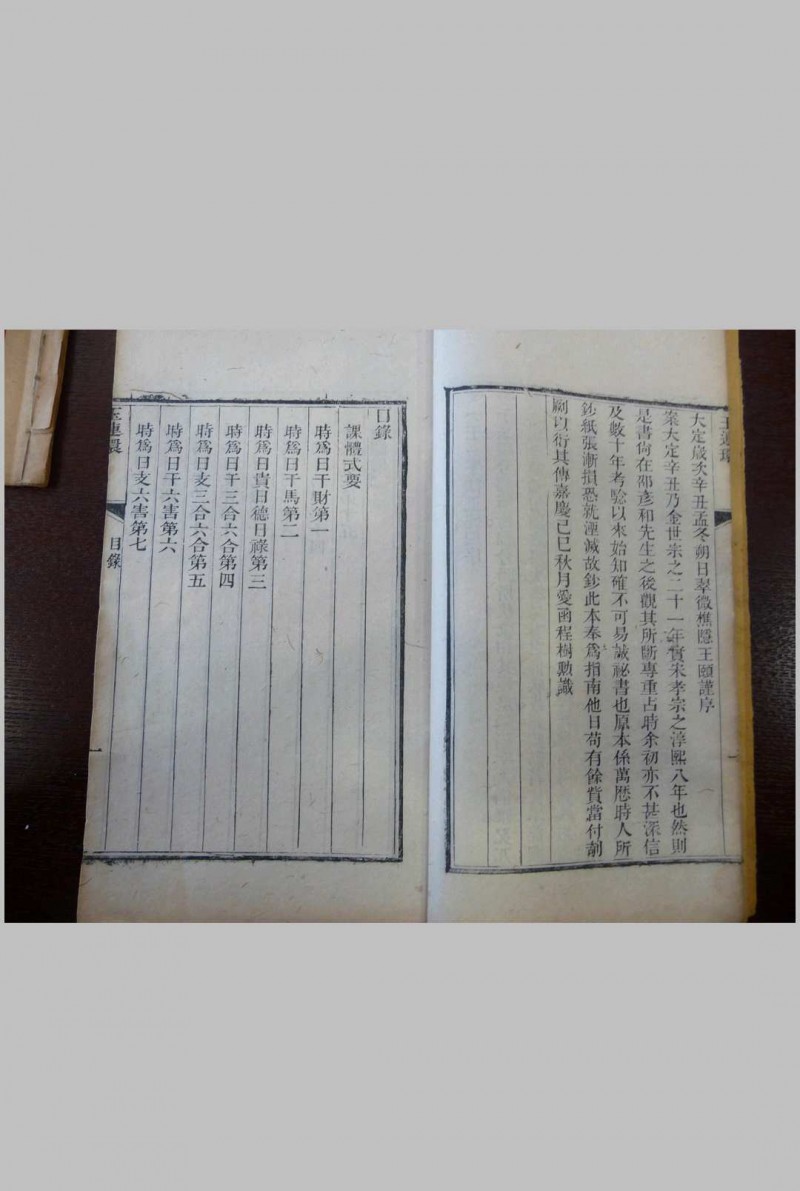 玉連環
大定歲次辛丑孟冬朔日翠微樵隱王頤謹序
案大定辛丑乃金世宗之二十一年實宋孝宗之淳熙八年也然則
是書尙在邵彥和先生之後觀其所斷專重占時余初亦不甚深信
及數十年考驗以來始知確不可易誠祕書也原本係萬歷時人所
鈔紙張漸損恐就湮滅故鈔此本奉爲指南他日苟有餘貲當付剞
劂以衍其傳嘉慶己巳秋月愛函程樹勲識
目錄
課體式要
時爲日干財第一
時爲日干馬第二
時爲日貴日德日祿第三
時爲日干三合六合第四
時爲日支三合六合第五
時爲日干六害第六
時爲日支六害第七
玉連環
目錄
一